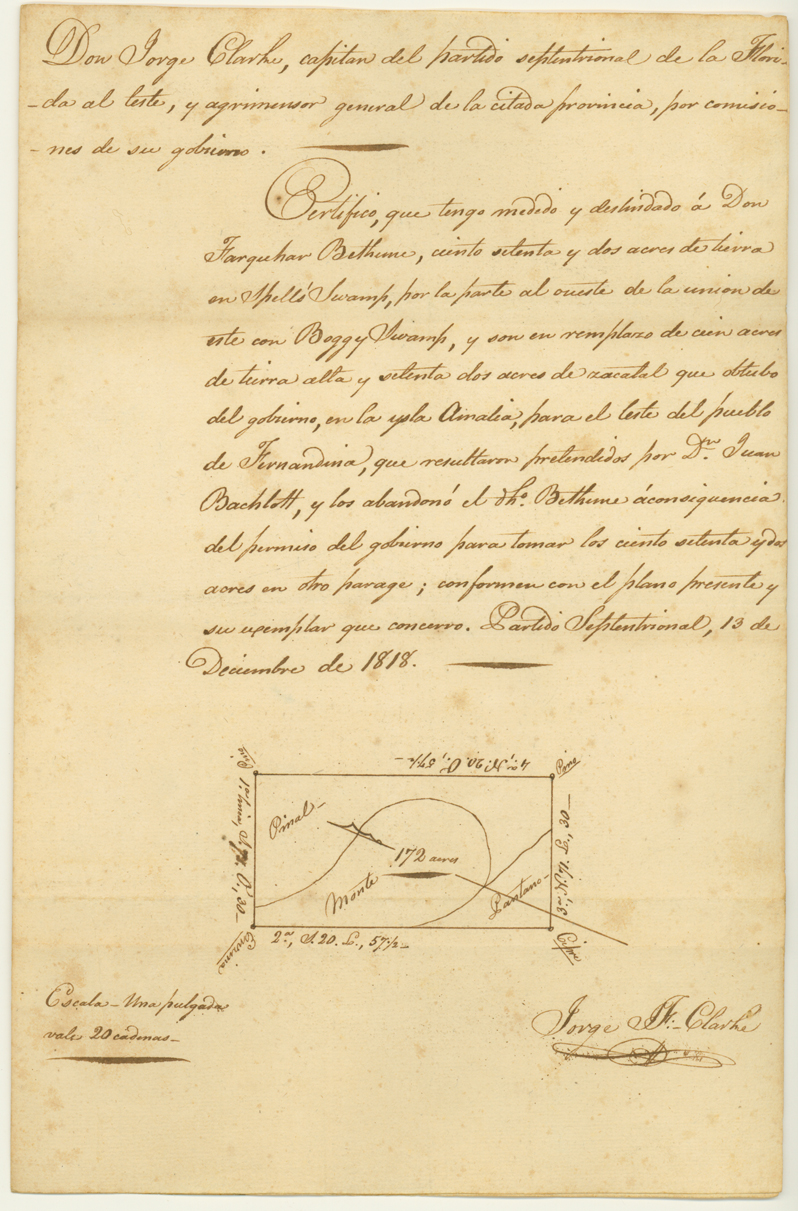 Don Jorge Clarke, capitan del partido septentrional de la Flori-
-da al leste, y agrimensor general de la citada provincia, por comisio-
-nes de su gobierno.
Certifico, que tengo medido y deslindado á Don
Farquhar Bethune, ciento setenta y dos acres de tierra
en Spell's Swamp, por la parte al oueste de la union de
este con Boggy Swamp, y son en remplazo de cien acres
de tierra alta y setenta dos acres de zacatal que obtubo
del gobierno, en la ysla Amalia, para el leste del pueblo
de Fernandina, que resultaron pretendidos por Dn. Juan
Bachlott, y los abandonó el dho. Bethune áconsiquencia
del permiso del gobierno para tomar los ciento setenta y dos
acres en otro parage; conformen con el plano presente y
su exemplar que concerro. Partido Septentrional, 13 de
Deciembre de 1818.
Pino
4a., N. 20. O., 57½
Pino
Pinal
172 acres
Monte
Pantano
3a., N. 71. L., 30
Encina
2a., S. 20. L., 57½
Cipre
Escala - Una pulgada
vale 20 cadenas
Jorge J. F. Clarke